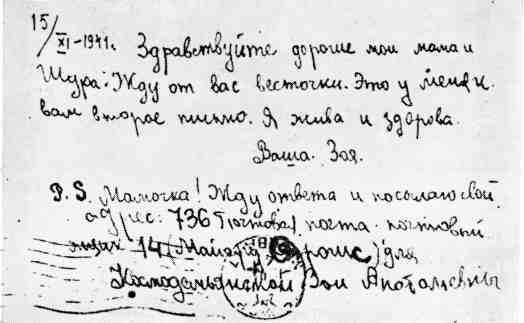 15/XI-1941г. Здравствуйте дорогие мои мама и
Шура! Жду от вас весточки. Это у меня к
вам второе письмо. Я жива и здорова.
Ваша. Зоя.
P.S. Мамочка! Жду ответа и посылаю свой
адрес: 736 почта почтовый
ящик 14 (Майору) для
Космодемьянской Зои Анатольевны